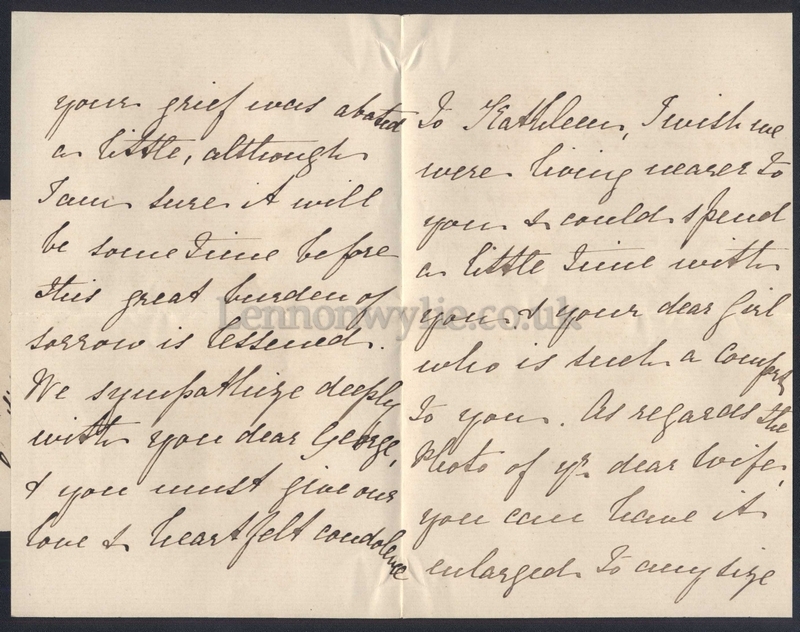 your grief was abated
a little, although
I am sure it will
be some time before
this great burden of
sorrow is lessened.
We sympathize deeply
with you dear George,
& you must give our
love & heartfelt condolence
to Kathleen, I wish we
were living nearer to
you & could spend
a little time with
you & your dear Girl
who is such a comfort
to you. As regards the
Photo of yr dear wife,
you can have it
enlarged to any size
Lennonwylie.co.uk